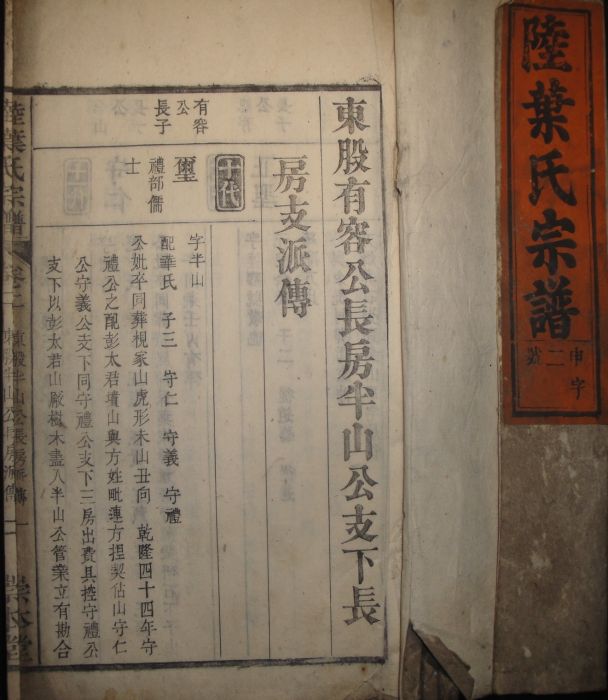 陸葉氏宗譜
申字
二號
東股有容公長房半山公支下長
房支派傳
十代
有容
公
長子
璽
禮部儒
士
字半山
配華氏 子三 守仁 守義 守禮
公妣卒同葬梘家山虎形未山丑向 乾隆四十四年守
禮公之配彭太君墳山與方姓毗連方捏契佔山守仁
公守義公支下同守禮公支下三房出費具控守禮公
支下以彭太君山蔭樹木盡入半山公管業立有勘合
陸葉氏宗譜
卷二
東股半山公長房派傳